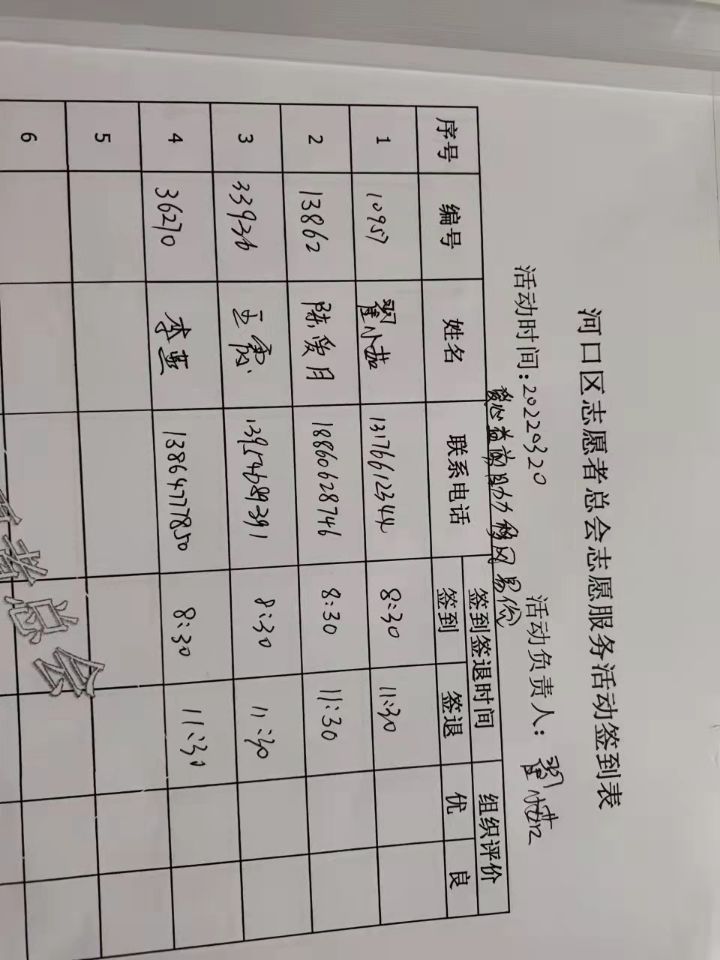 河口区志愿者总会志愿服务活动签到表
活动时间:20220320 活动负责人: 翟小茹
爱心益阅 助力移风易俗
序号 编号 姓名 联系电话 签到签退时间 组织评价
签到 签退 优 良
1 10957 翟小茹 13176612344 8:30 11:30
2 13862 陈爱月 18860628746 8:30 11:30
3 33936 王霞 13954689391 8:30 11:30
4 36270 李燕 13864777850 8:30 11:30
5
6
者总会